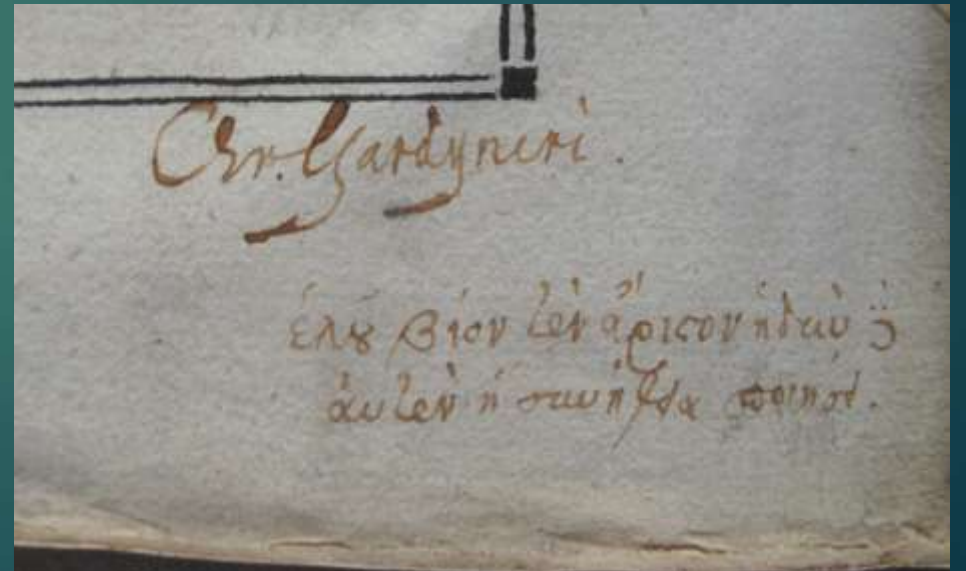 Chr. Gardyneri.
ἑλοῦ βίον τὸν ἄριστον ἡδὺν δὲ
ἀυτὸν ἡ συνήθεια ποιήσει.